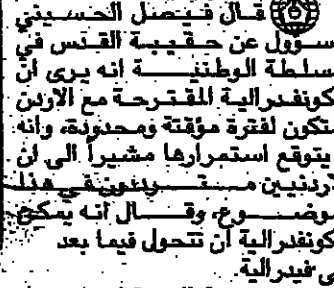 قال فيصل الحسيني
سؤول عن حقيبة القدس في
سلطة الوطنية انه يرى ان
كونفدرالية المقترحة مع الاردن
تكون لفترة مؤقتة ومحدودة، وانه
يتوقع استمرارها مشيراً الى ان
ردنيين في هذا
وضوع، وقال انه يمكن
كونفدرالية ان تتحول فيما بعد
ى فيدرالية.